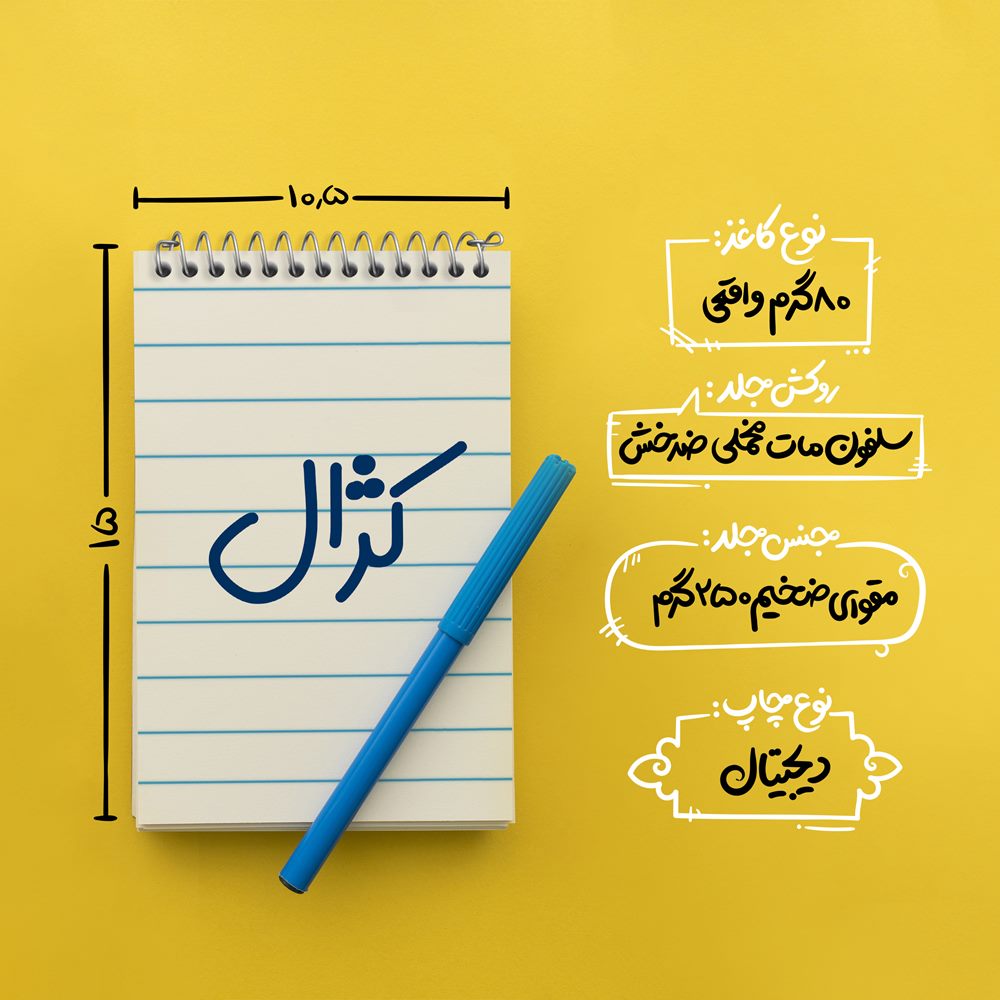 ۱۰٫۵
۱۵
کژال
نوع کاغذ:
۸۰گرم واقعی
روکش جلد:
سلفون مات مخملی ضدخش
جنس جلد:
مقوای ضخیم ۲۵۰گرم
نوع چاپ:
دیجیتال